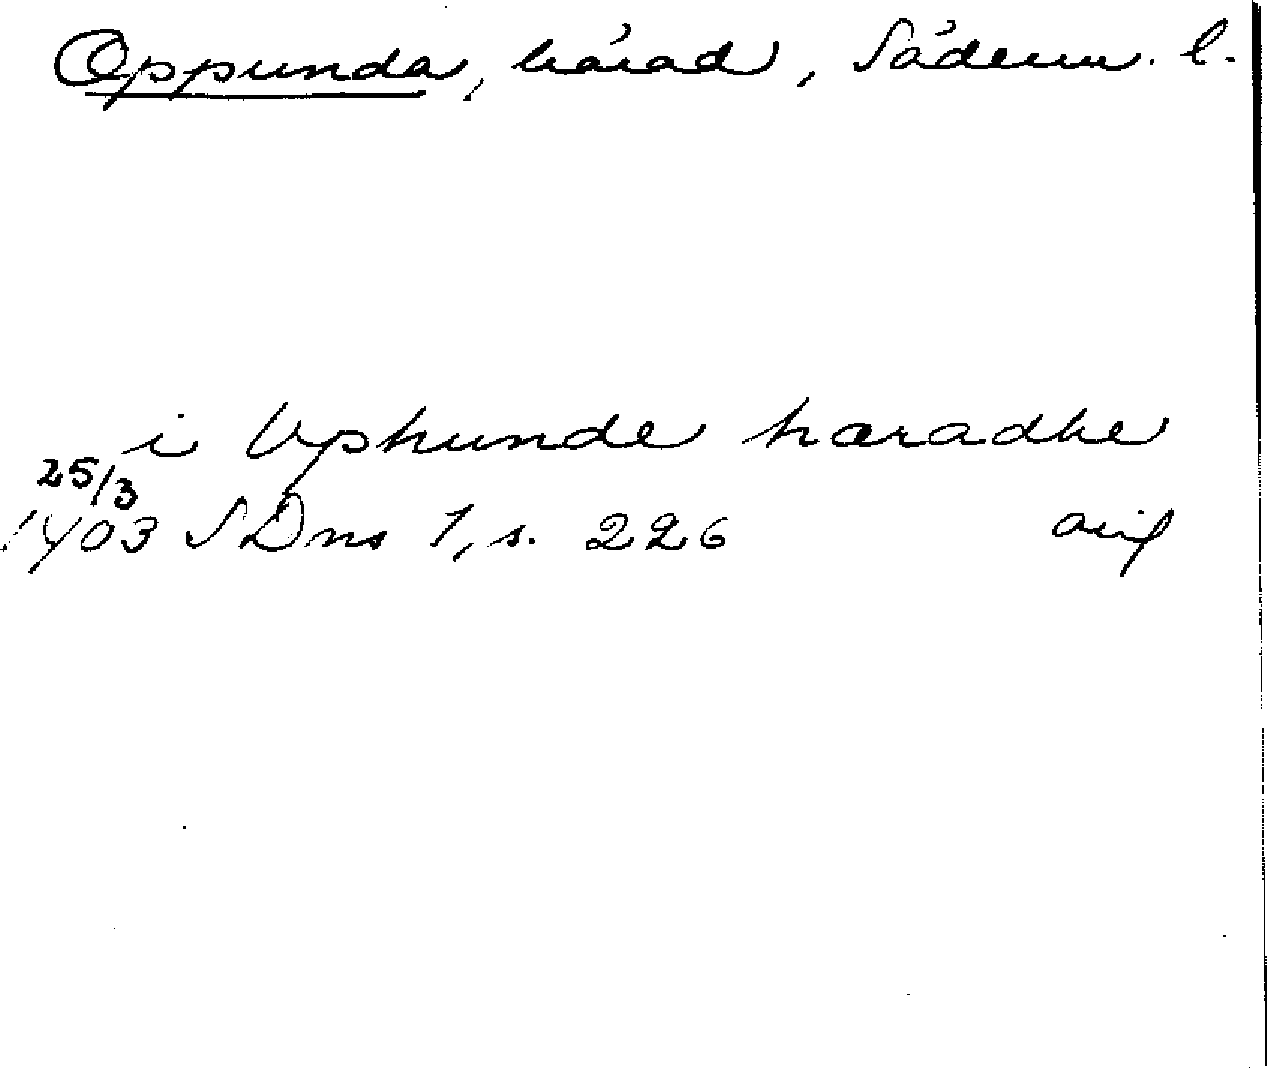 Oppunda, härad, Söderm. l.
i Vphunde hæradhe
25/3
1403 SDns 1, s. 226 avs